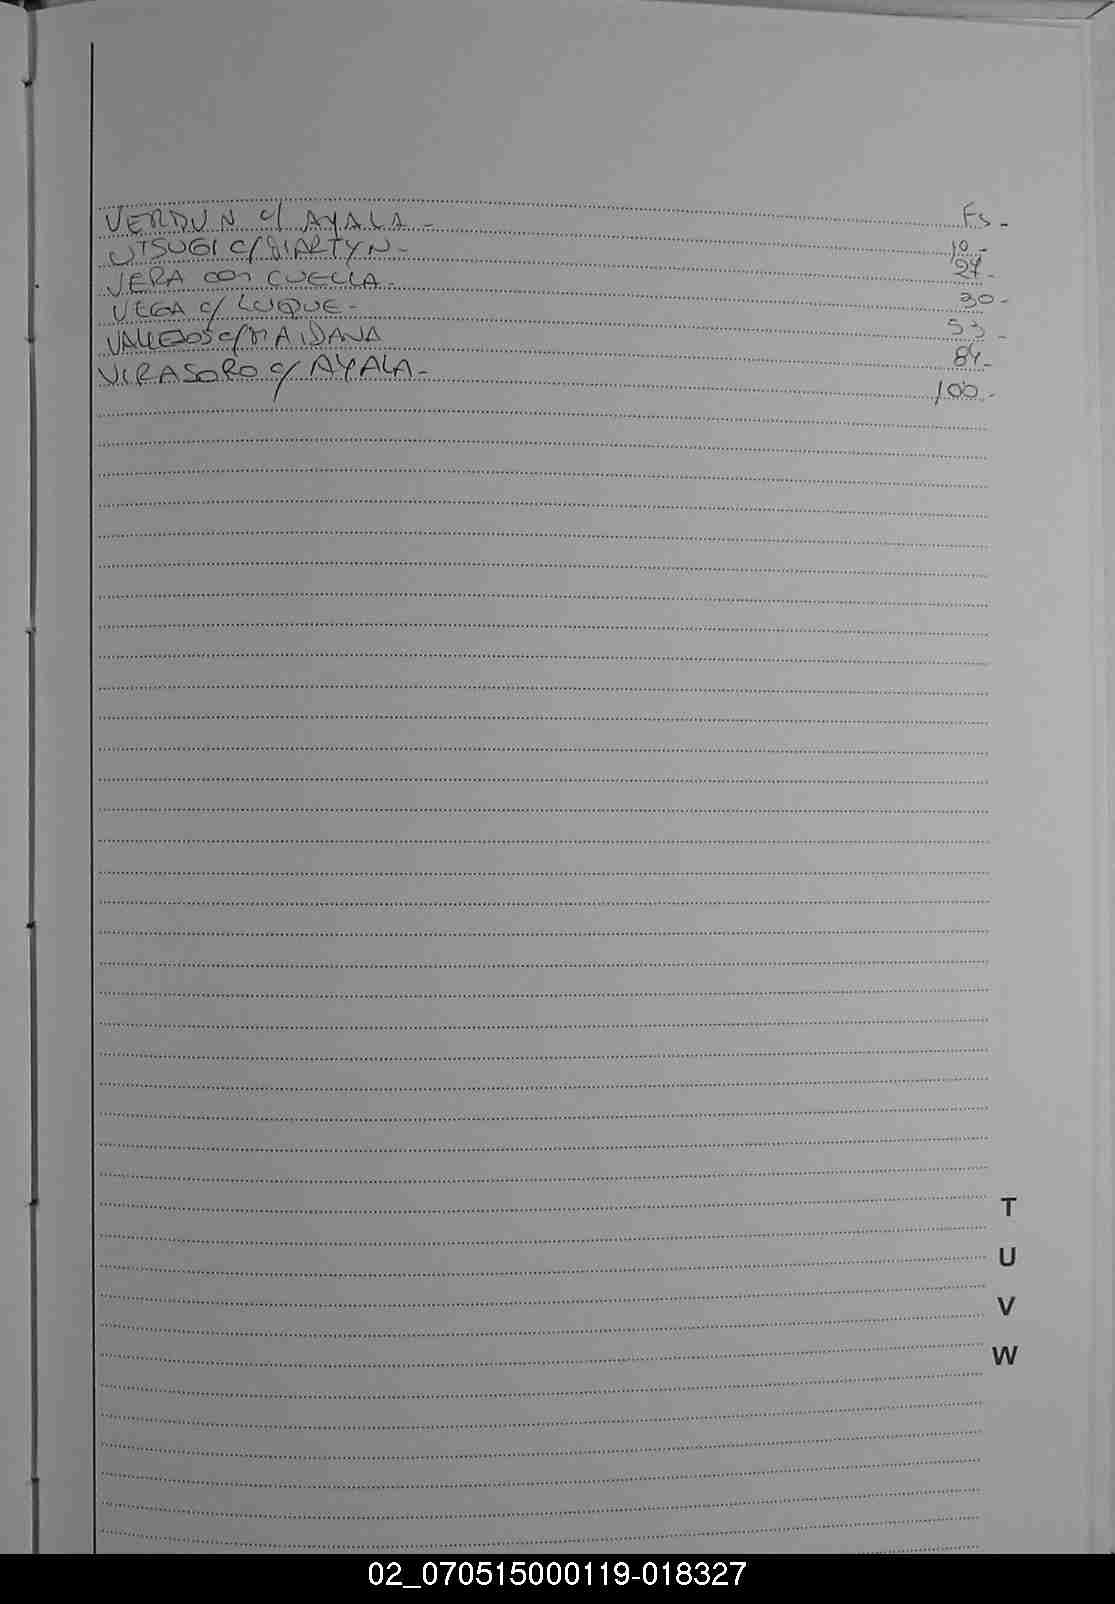 VERDUN c/ AYALA - Fs -
UTSUGI c/ MARTYN - 10 -
VERA con CUELLA - 27 -
VEGA c/ LUQUE - 30 -
VALLEJOS c/ MAIDANA 53 -
VIRASORO c/ AYALA - 84 -
100 -
T
U
V
W
02_070515000119-018327